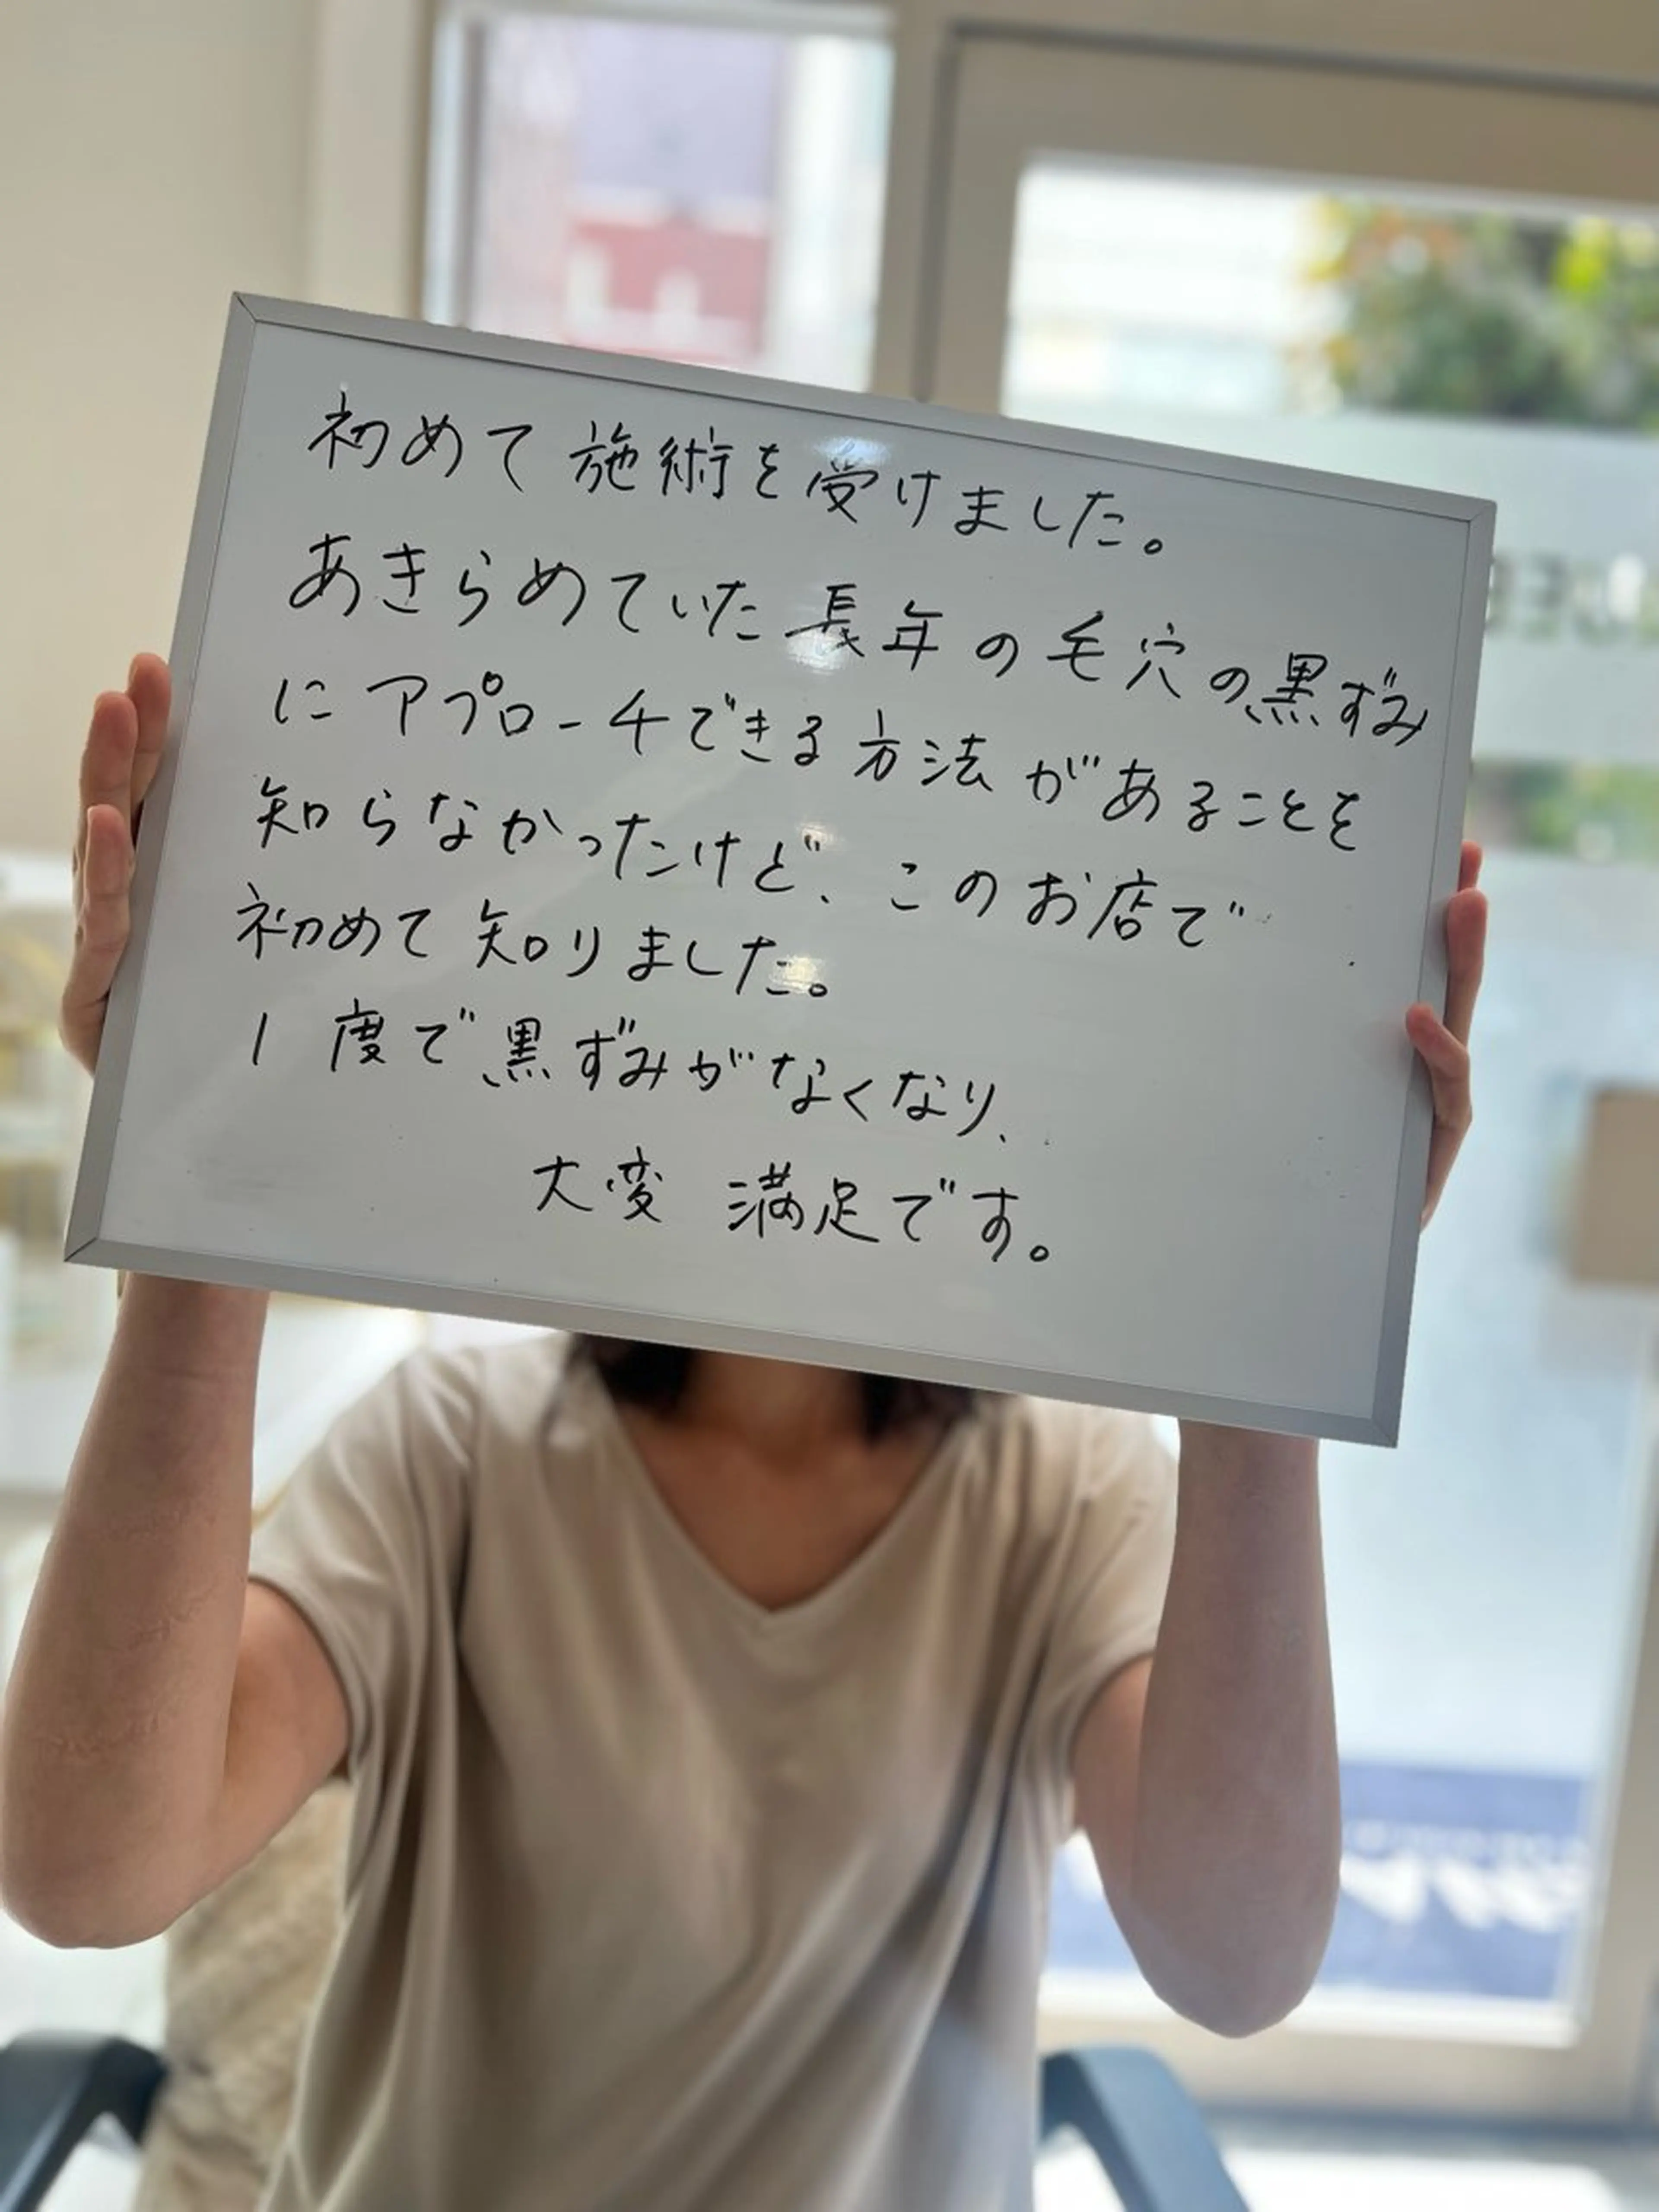 初めて施術を受けました。
あきらめていた長年の毛穴の黒ずみ
にアプローチできる方法があることを
知らなかったけど、このお店で
初めて知りました。
1度で黒ずみがなくなり、
大変満足です。